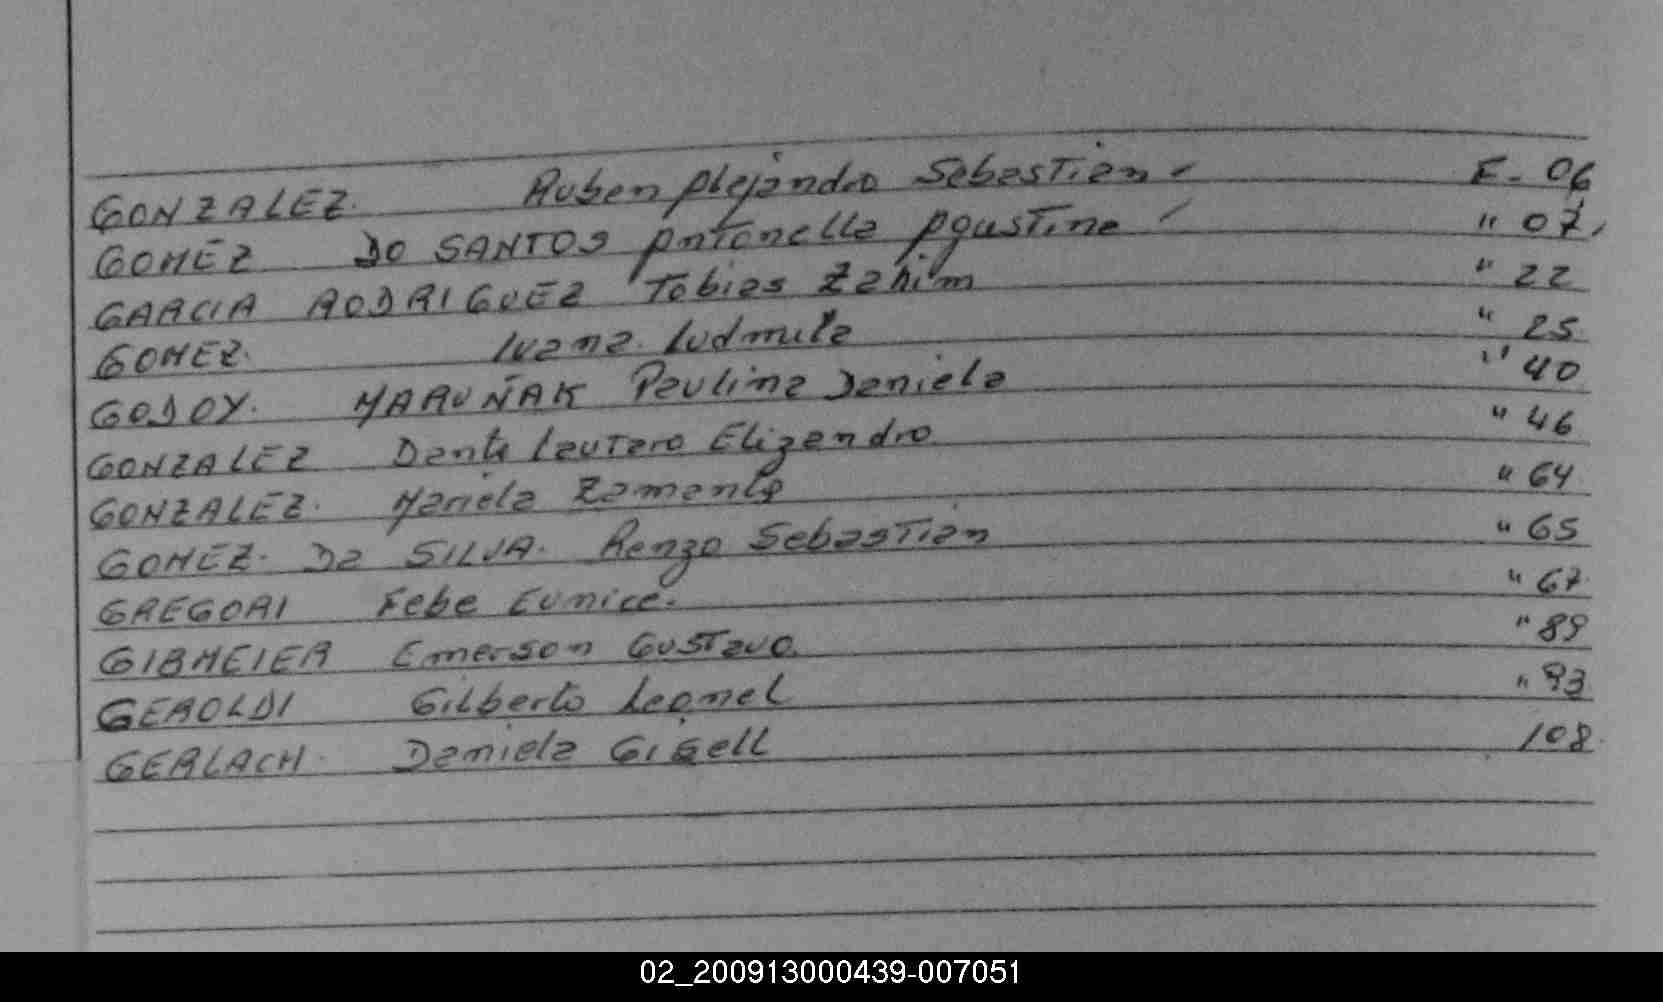 GONZALEZ. Ruben Alejandro Sebastian - E- 06
GOMEZ DO SANTOS Antonella Agustina " 07,
GARCIA RODRIGUEZ Tobias Zahim " 22
GOMEZ. Ivana Ludmila " 25
GODOY. MARUÑAK Paulina Daniela " 40
GONZALEZ Dante Lautaro Elizandro " 46
GONZALEZ. Mariela " 64
GOMEZ. Da SILVA. Renzo Sebastian " 65
GREGORI Febe Eunice. " 67
GIBMEIER Emerson Gustavo. " 89
GEROLDI Gilberto Leonel " 93
GERLACH. Daniela Gisell 108.
02_200913000439-007051